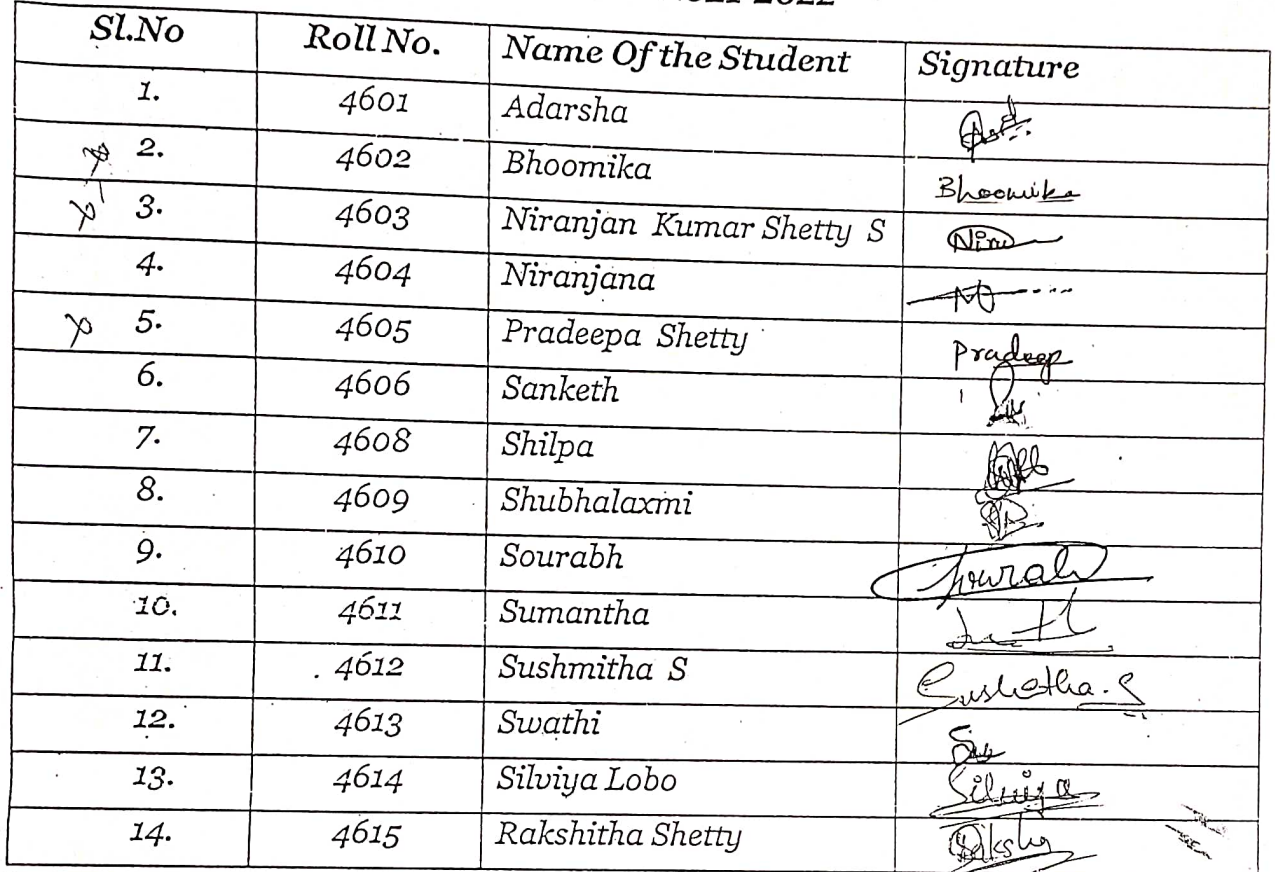 Sl.No Roll No. Name Of the Student Signature
1. 4601 Adarsha
2. 4602 Bhoomika Bhoomika
3. 4603 Niranjan Kumar Shetty S Niru
4. 4604 Niranjana
5. 4605 Pradeepa Shetty Pradeep
6. 4606 Sanketh
7. 4608 Shilpa
8. 4609 Shubhalaxmi
9. 4610 Sourabh Sourabh
10. 4611 Sumantha
11. 4612 Sushmitha S
12. 4613 Swathi
13. 4614 Silviya Lobo Silviya
14. 4615 Rakshitha Shetty